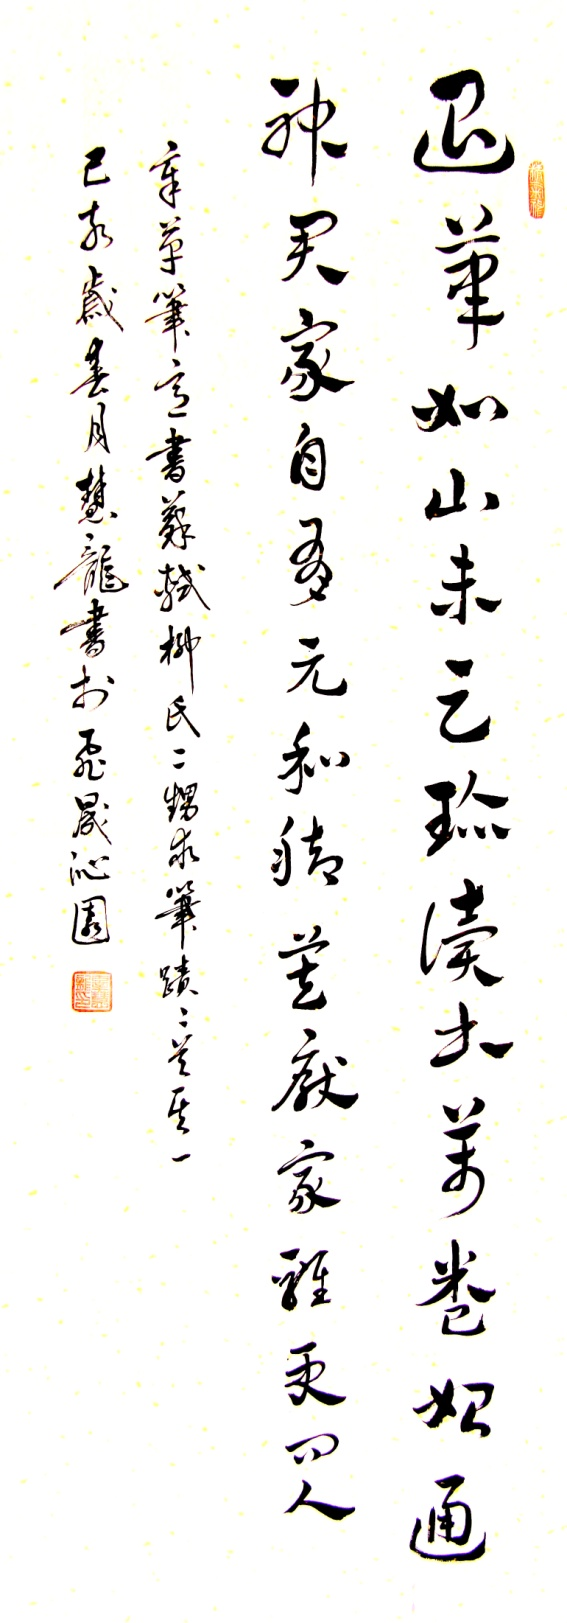 退筆如山未足珍讀書萬卷始通
神君家自有元和腳莫厭家雞更問人
章草筆意書蘇軾柳氏二甥求筆蹟二首其一
己亥歲春月慧龍書於飛晟沁園